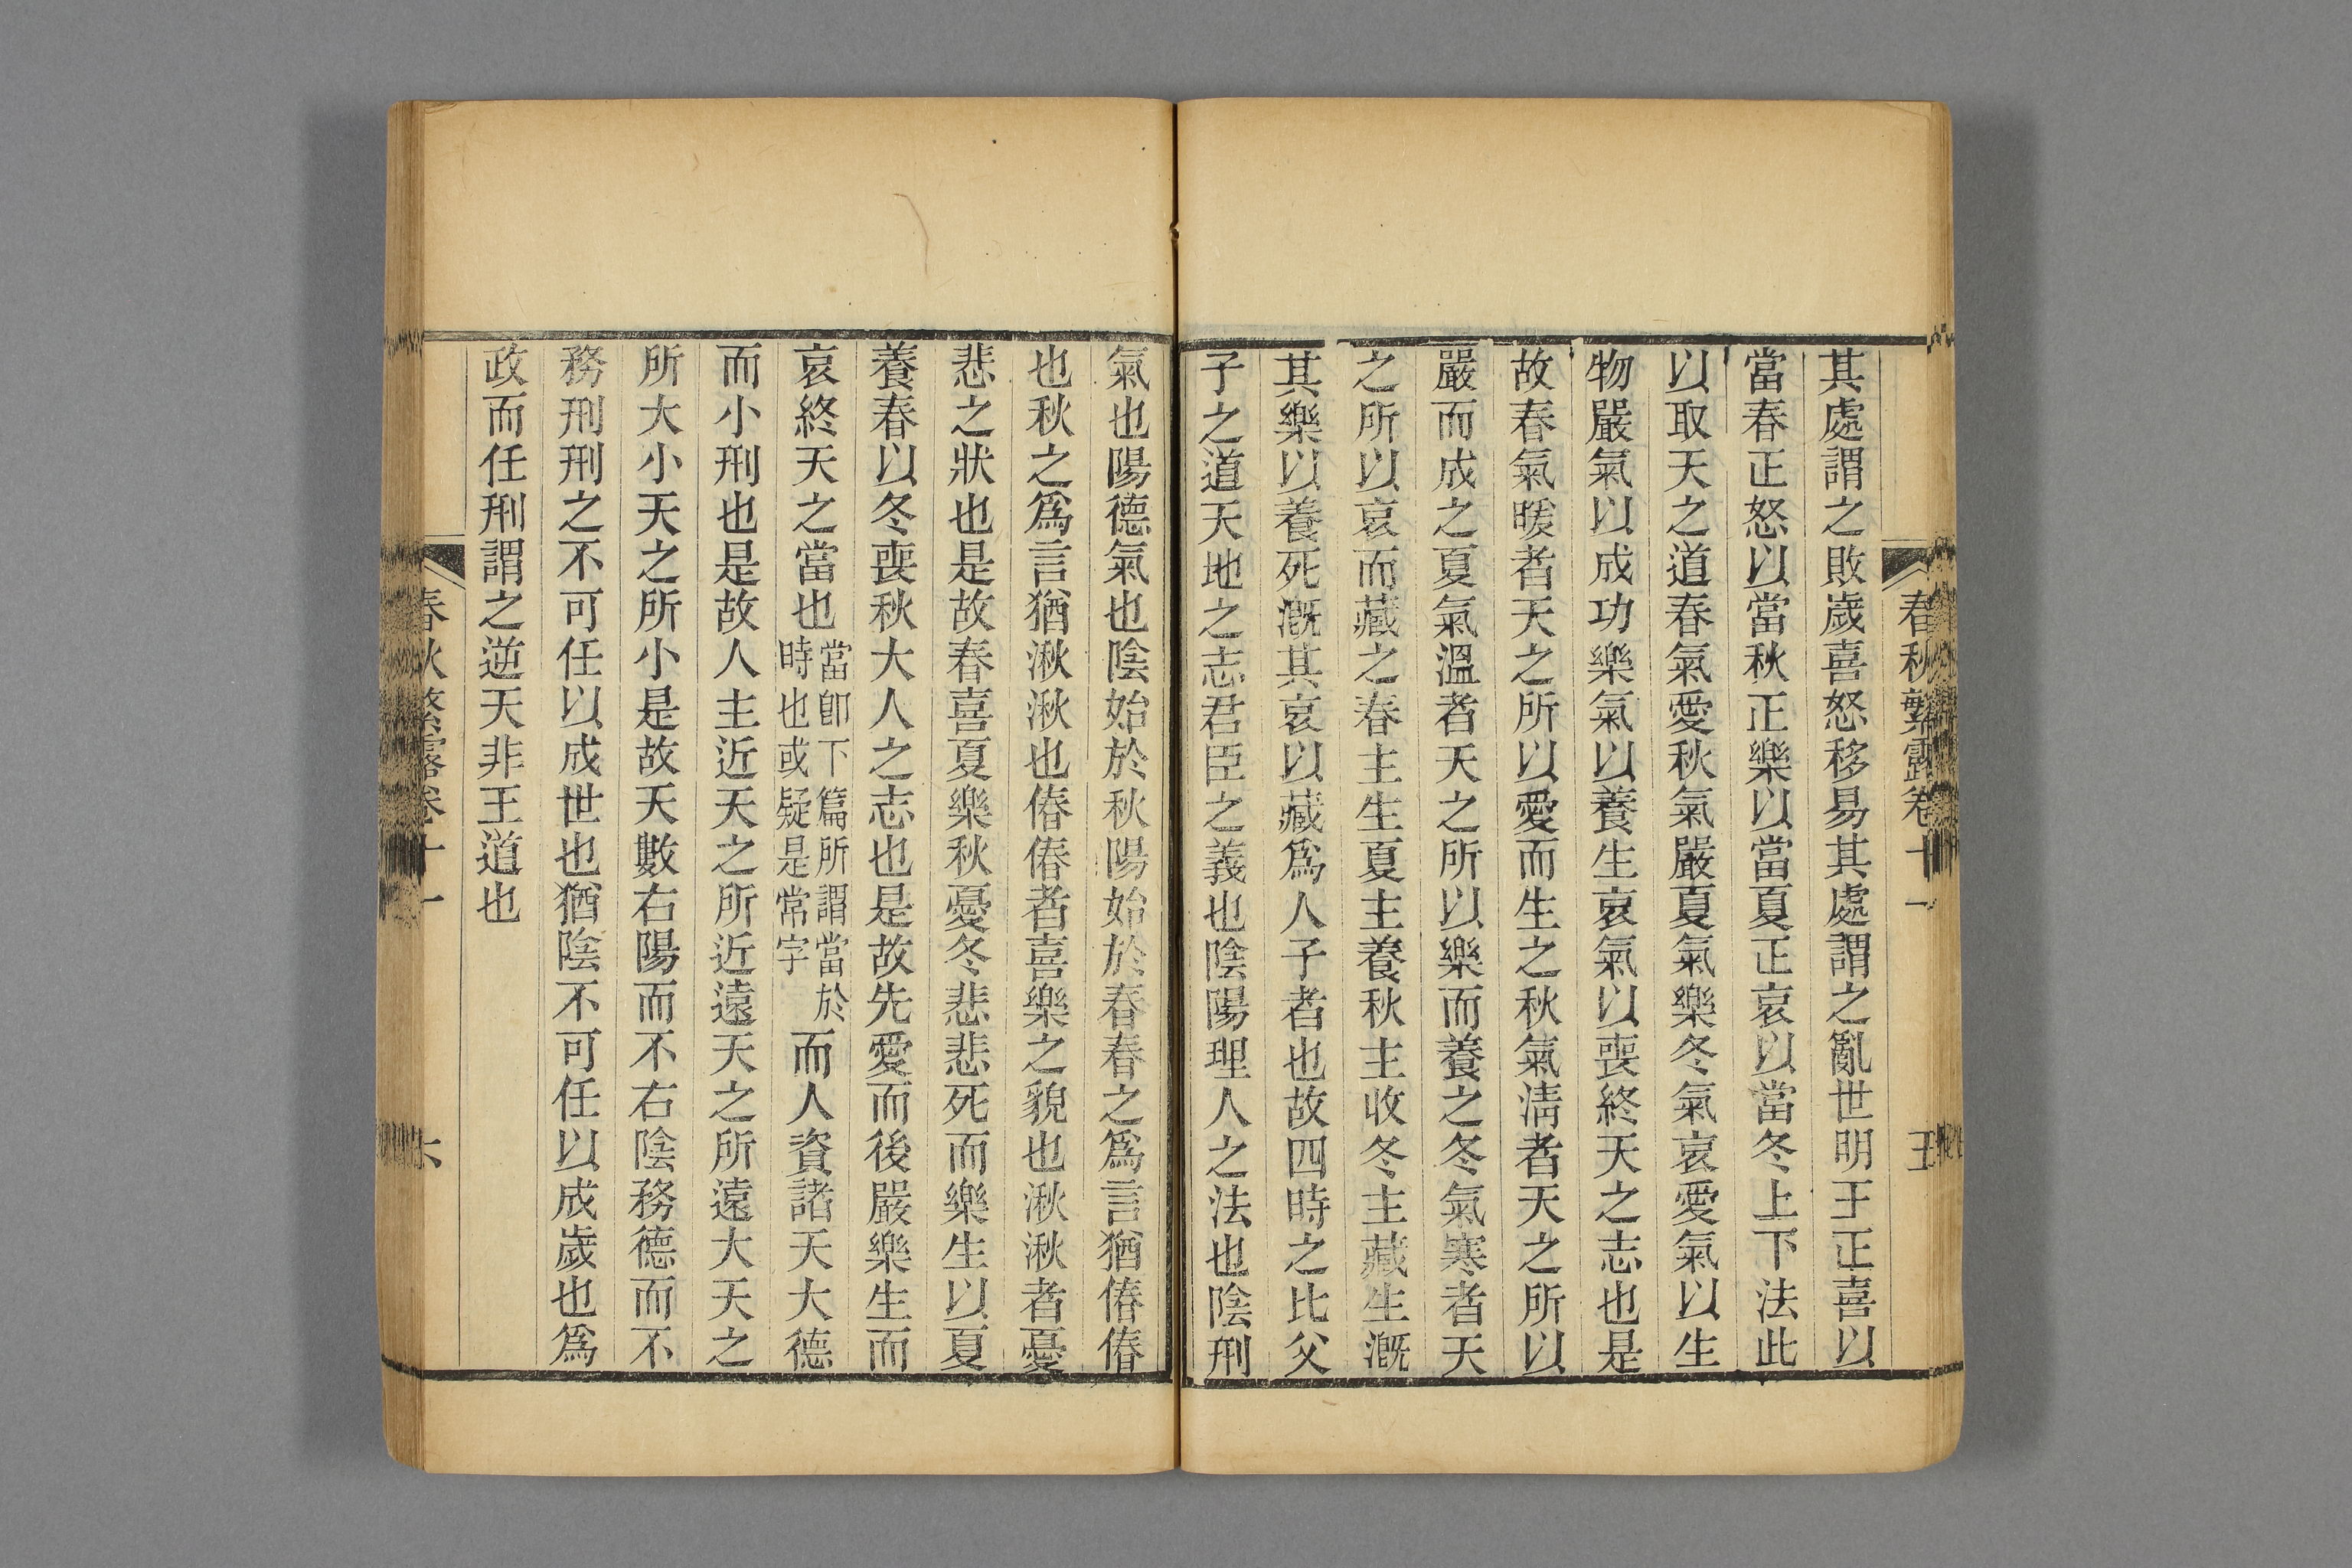 春秋繁露卷十一
五
其處謂之敗歲喜怒移易其處謂之亂世明王正喜以
當春正怒以當秋正樂以當夏正哀以當冬上下法此
以取天之道春氣愛秋氣嚴夏氣樂冬氣哀愛氣以生
物嚴氣以成功樂氣以養生哀氣以喪終天之志也是
故春氣暖者天之所以愛而生之秋氣淸者天之所以
嚴而成之夏氣溫者天之所以樂而養之冬氣寒者天
之所以哀而藏之春主生夏主養秋主收冬主藏生漑
其樂以養死漑其哀以藏爲人子者也故四時之比父
子之道天地之志君臣之義也陰陽理人之法也陰刑
氣也陽德氣也陰始於秋陽始於春春之爲言猶偆偆
也秋之爲言猶湫湫也偆偆者喜樂之貌也湫湫者憂
悲之狀也是故春喜夏樂秋憂冬悲悲死而樂生以夏
養春以冬喪秋大人之志也是故先愛而後嚴樂生而
哀終天之當也當卽下篇所謂當於時也或疑是常字而人資諸天大德
而小刑也是故人主近天之所近遠天之所遠大天之
所大小天之所小是故天數右陽而不右陰務德而不
務刑刑之不可任以成世也猶陰不可任以成歲也爲
政而任刑謂之逆天非王道也
春秋繁露卷十一
六